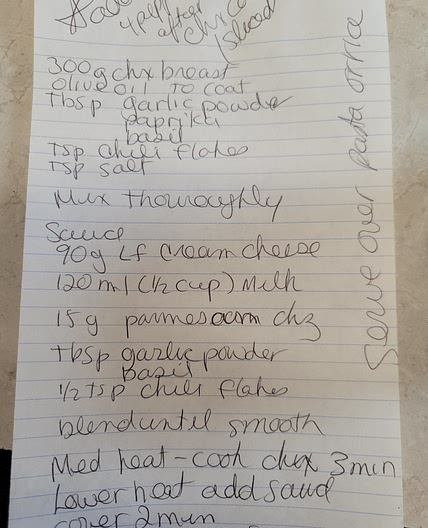 4 pm
after
chx is
sliced
300g chx breast
olive oil TO coat
Tbsp garlic powder
paprika
basil
TSp chili flakes
TSp salt
Mix thoroughly
Sauce
90g LF cream cheese
120 ml (1/2 cup) Milk
15 g parmesan chz
tbsp garlic powder
basil
1/2 tsp chili flakes
blend until smooth
Med heat - cook chx 3 min
Lower heat add sauce
cover 2 min
Serve over pasta or rice